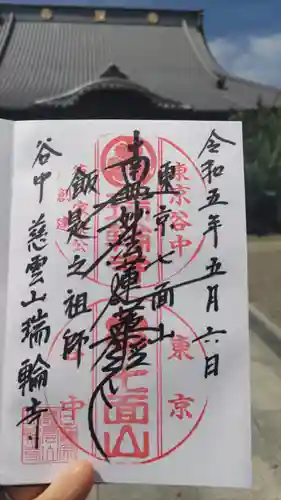 令和五年五月六日
東京七面山
南無妙法蓮華経
飯匙之祖師
谷中 慈雲山瑞輪寺
東京谷中
東京
谷中
七面山